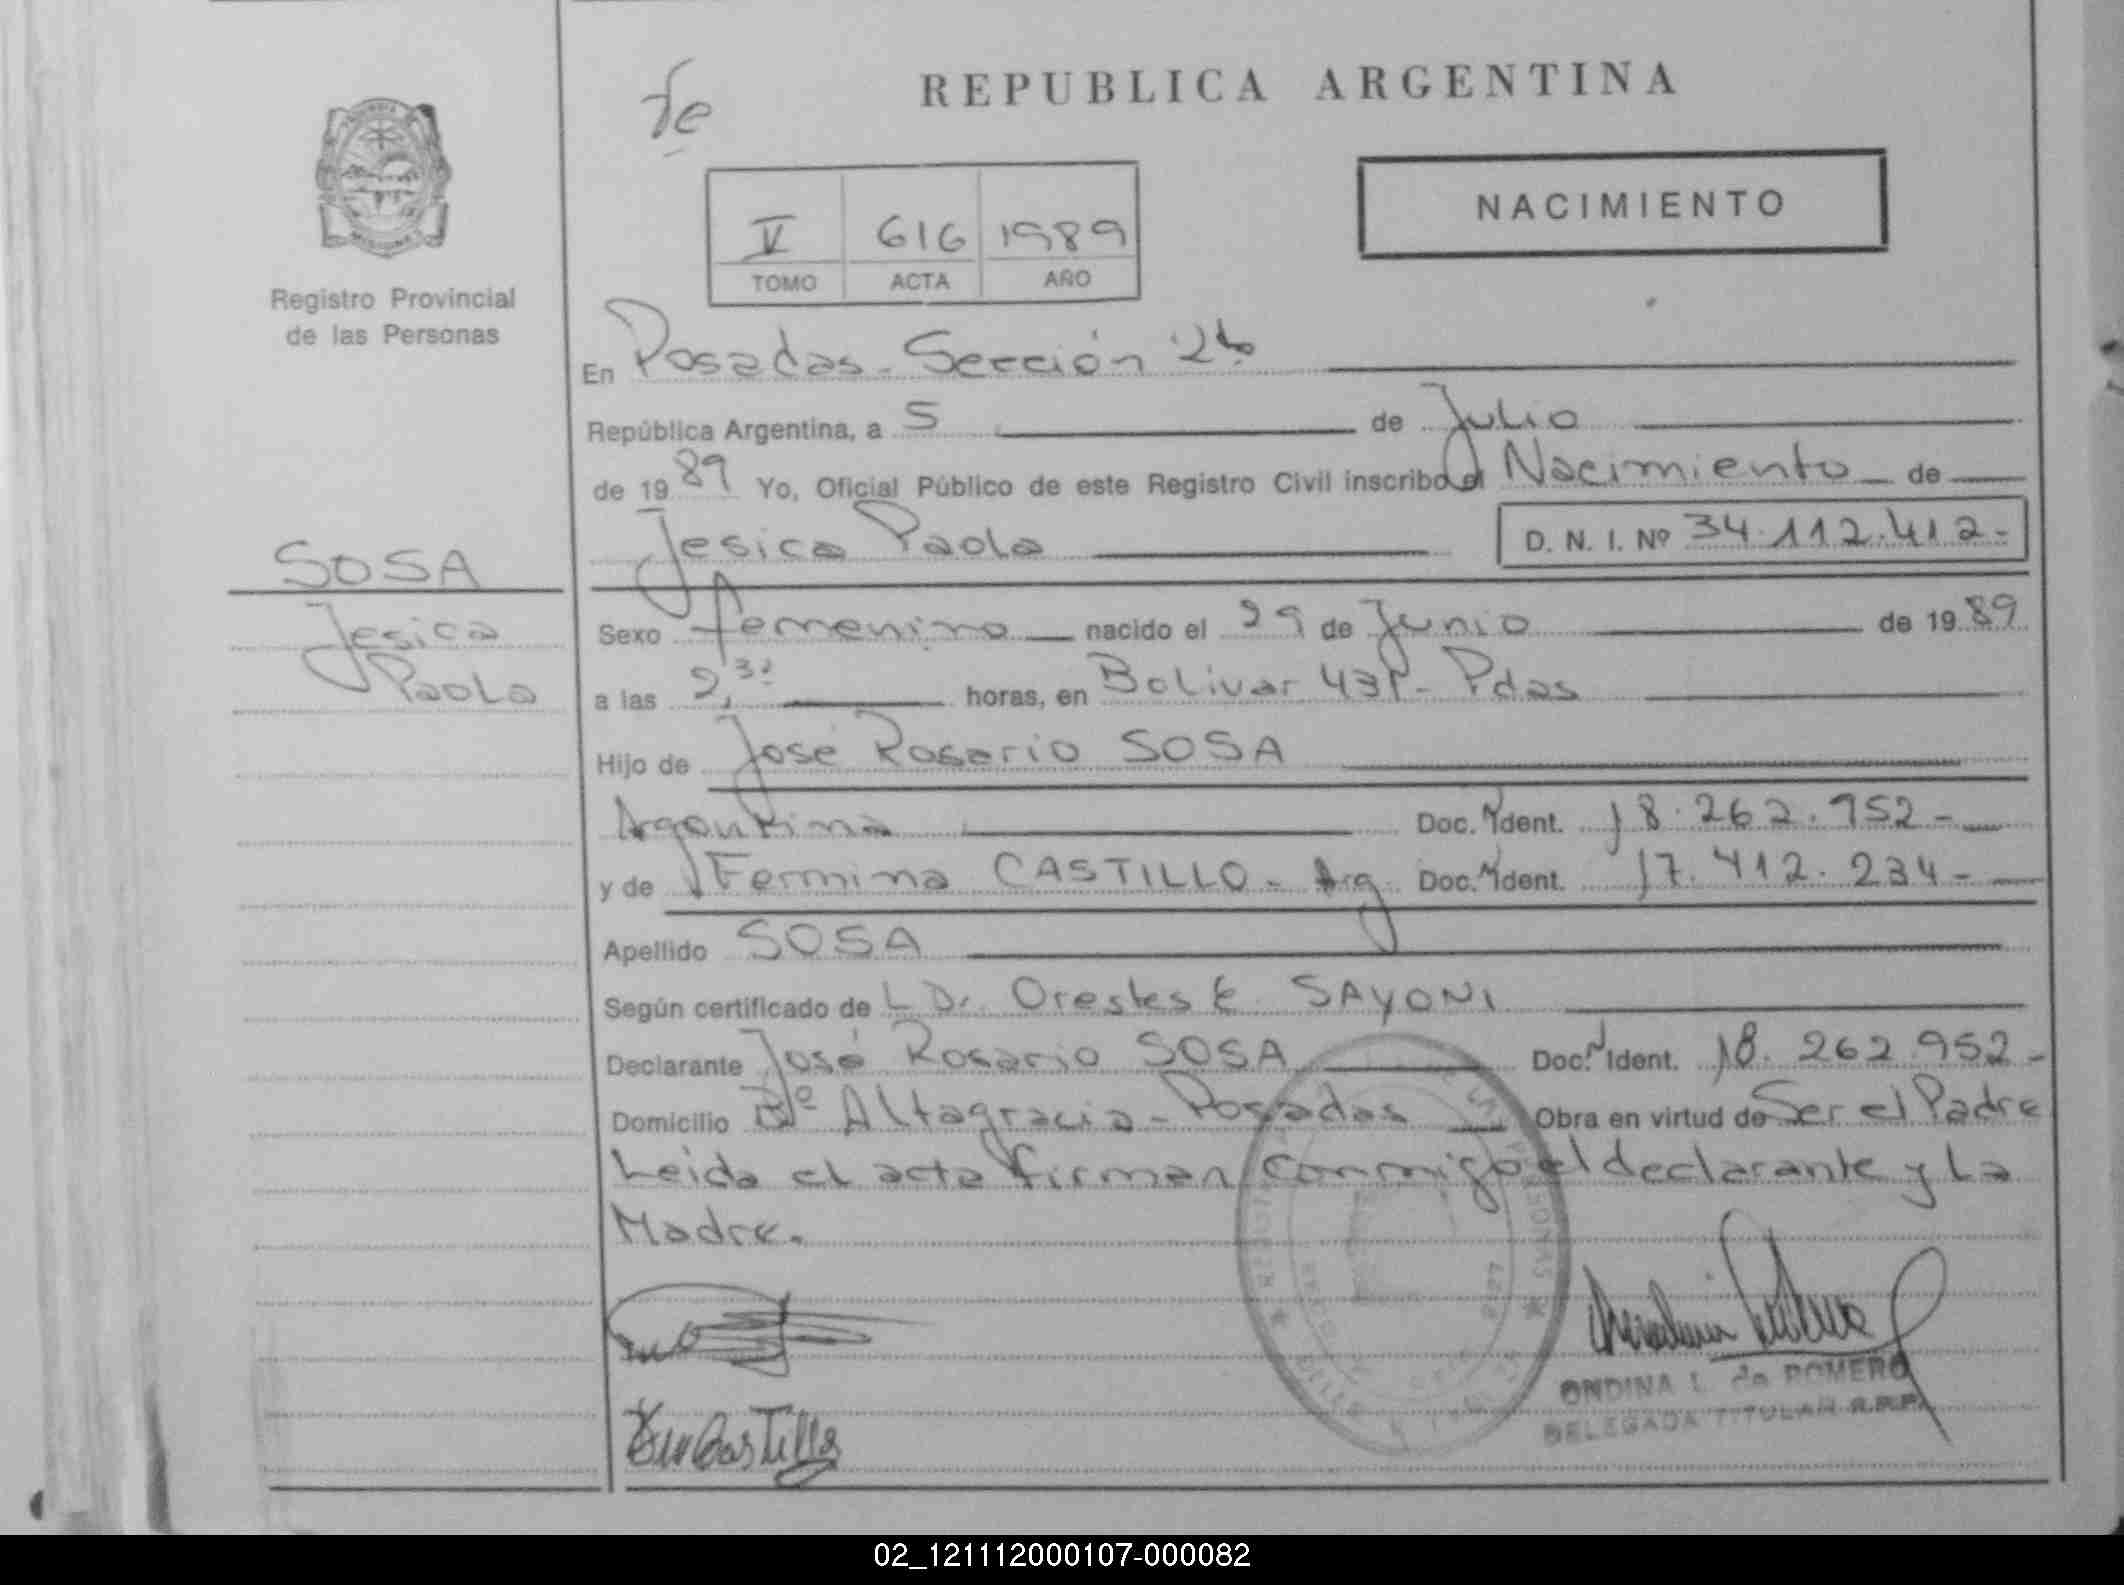 Fe
REPUBLICA ARGENTINA
NACIMIENTO
V 616 1989
TOMO ACTA AÑO
Registro Provincial
de las Personas
En Posadas - Sección 2da
República Argentina, a 5 de Julio
de 1989 Yo, Oficial Público de este Registro Civil inscribo el Nacimiento de
Jesica Paola D. N. I. Nº 34.112.412-
SOSA
Jesica
Paola
Sexo femenino nacido el 29 de Junio de 1989
a las 2,30 horas, en Bolivar - Pdas
Hijo de José Rosario SOSA
Argentina Doc. Ident. 18.262.952-
y de Fermina CASTILLO - Arg Doc. Ident. 17.412.234-
Apellido SOSA
Según certificado de L Dr. Orestes E. SAYONI
Declarante José Rosario SOSA Doc. Ident. 18.262.952-
Domicilio Bº Altagracia - Posadas Obra en virtud de Ser el Padre
Leida el acta firman conmigo el declarante y La
Madre.
Castillo
ONDINA L. de ROMERO
DELEGADA TITULAR R.P.P.
02_121112000107-000082